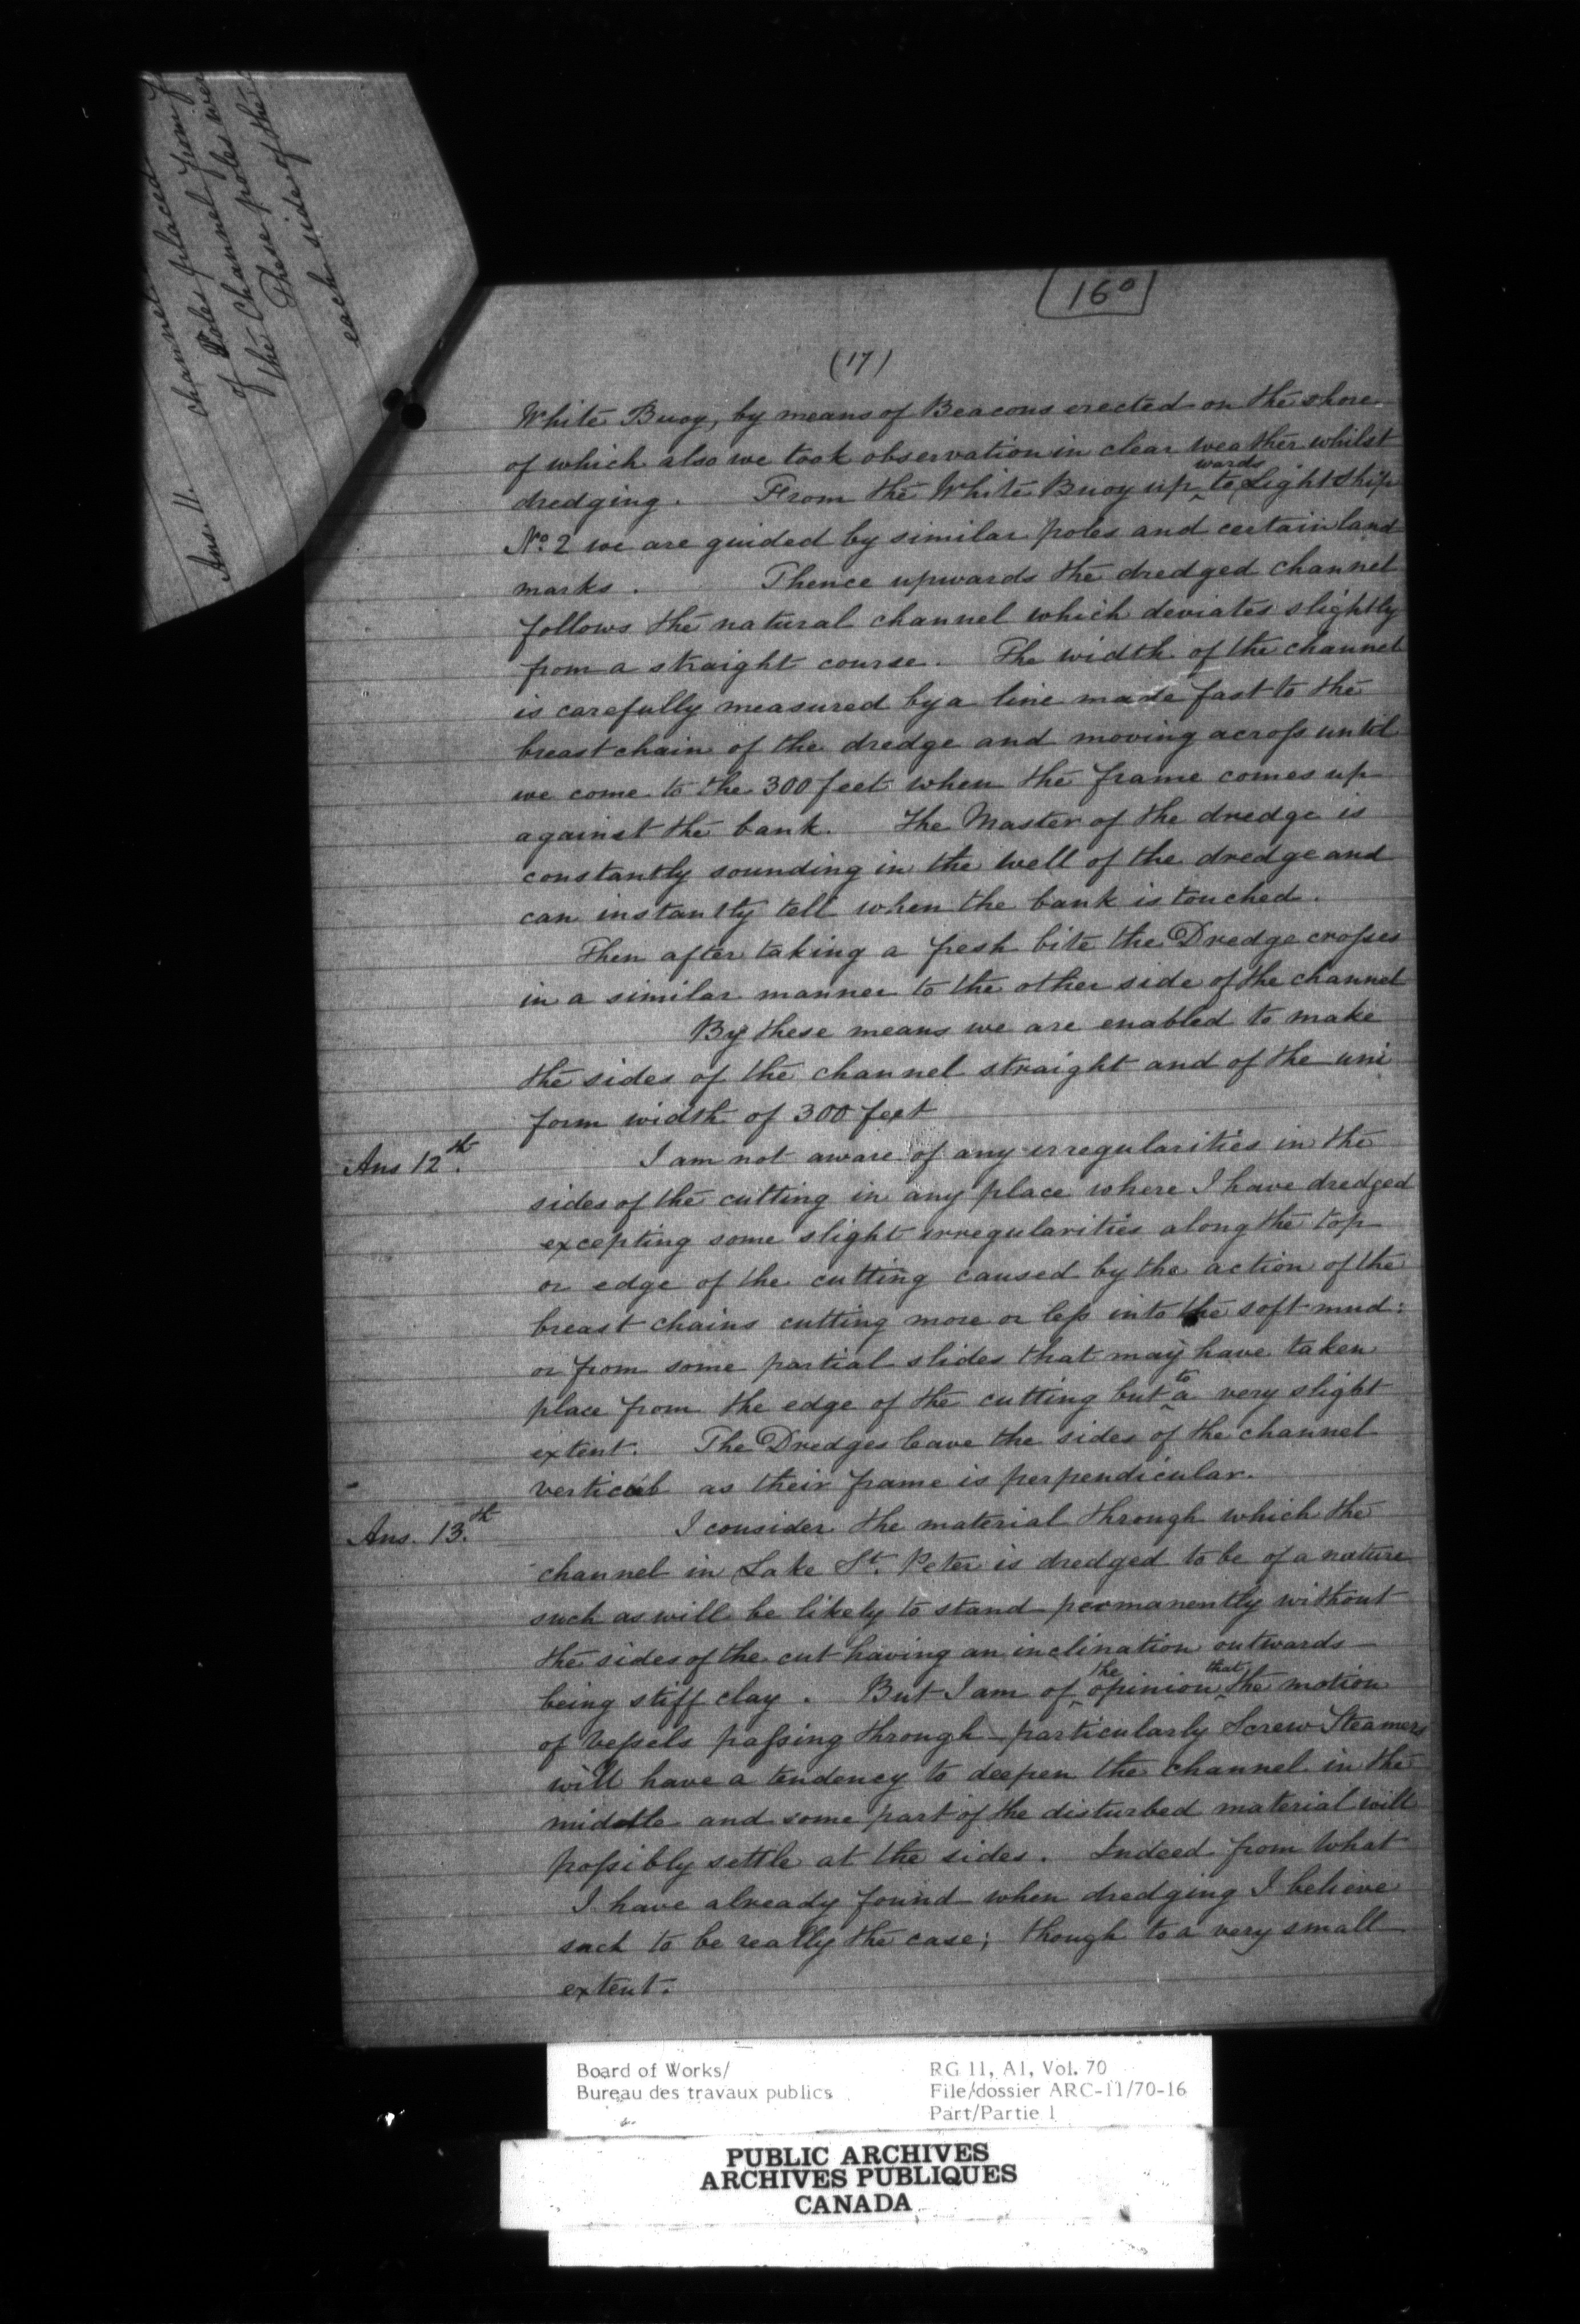 channel placed
channel from
of Poles
of the Channel were
the These poles the
each side of the
Ans. 11.
160
(17)
White Buoy, by means of Beacons erected on the shore
of which also we took observation in clear weather whilst
dredging. From the White Buoy upwards to Light Ship
No. 2 we are guided by similar poles and certain land
marks. Thence upwards the dredged channel
follows the natural channel which deviates slightly
from a straight course. The width of the channel
is carefully measured by a line made fast to the
breast chain of the dredge and moving across until
we come to the 300 feet when the frame comes up
against the bank. The Master of the dredge is
constantly sounding in the well of the dredge and
can instantly tell when the bank is touched.
Then after taking a fresh bite the Dredge crosses
in a similar manner to the other side of the channel
By these means we are enabled to make
the sides of the channel straight and of the uni
form width of 300 feet
Ans 12th. I am not aware of any irregularities in the
sides of the cutting in any place where I have dredged
excepting some slight irregularities along the top
or edge of the cutting caused by the action of the
breast chains cutting more or less into the soft mud:
or from some partial slides that may have taken
place from the edge of the cutting but to a very slight
extent. The Dredges leave the sides of the channel
vertical as their frame is perpendicular.
Ans. 13.th I consider the material through which the
channel in Lake St. Peter is dredged to be of a nature
such as will be likely to stand permanently without
the sides of the cut having an inclination outwards
being stiff clay. But I am of the opinion that the motion
of vessels passing through particularly Screw Steamers
will have a tendency to deepen the channel in the
middle and some part of the disturbed material will
possibly settle at the sides. Indeed from what
I have already found when dredging I believe
such to be really the case; though to a very small
extent.
Board of Works/
Bureau des travaux publics
RG 11, A1, Vol. 70
File/dossier ARC-11/70-16
Part/Partie 1
PUBLIC ARCHIVES
ARCHIVES PUBLIQUES
CANADA